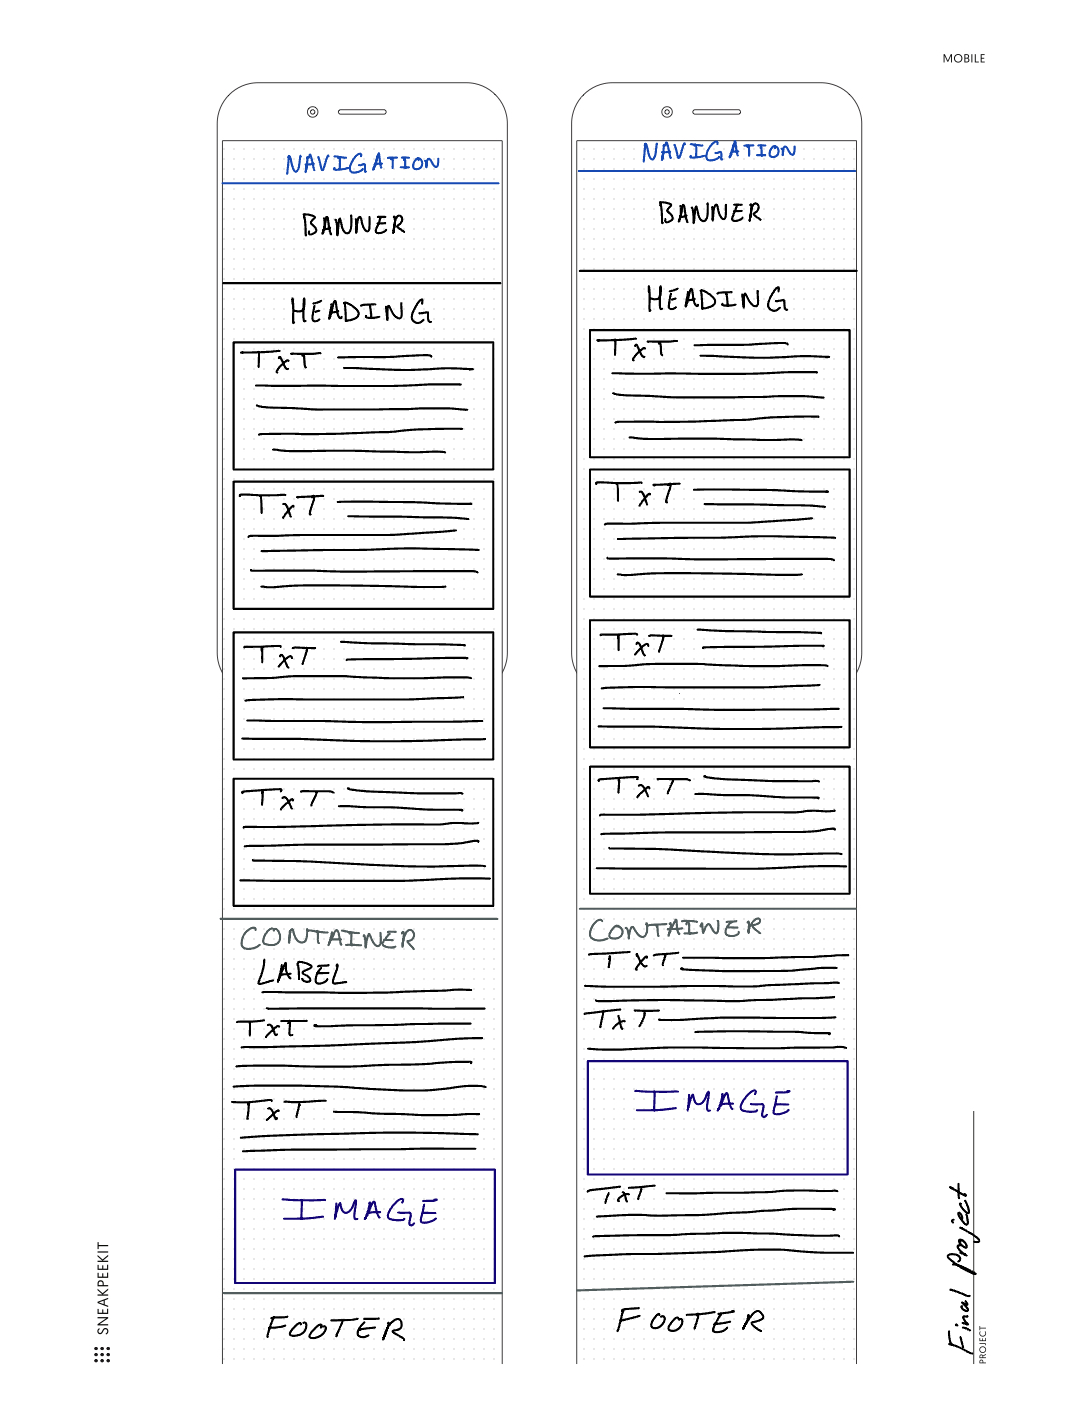 MOBILE
NAVIGATION
BANNER
HEADING
TXT
TXT
TXT
TXT
CONTAINER
LABEL
TXT
TXT
IMAGE
FOOTER
NAVIGATION
BANNER
HEADING
TXT
TXT
TXT
TXT
CONTAINER
TXT
TXT
IMAGE
TXT
FOOTER
SNEAKPEEKIT
Final Project
PROJECT